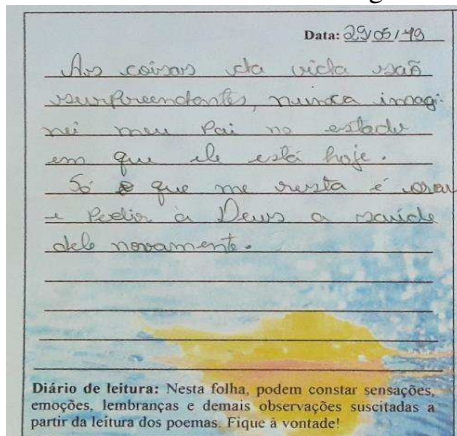 Data: 29/05/19
As coisas da vida são
surpreendentes, nunca imagi-
nei meu Pai no estado
em que ele está hoje.
Só o que me resta é orar
e Pedir à Deus a saúde
dele novamente.
Diário de leitura: Nesta folha, podem constar sensações,
emoções, lembranças e demais observações suscitadas a
partir da leitura dos poemas. Fique à vontade!